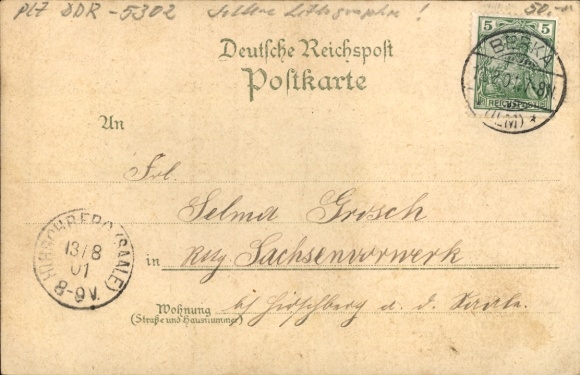 PLZ DDR - 5302 Seltene Lithographie ! 50,-
5
BERKA
7-8N
REICHSPOST
(ILM) *
Deutsche Reichspost
Postkarte
An
Frl.
Selma Grosch
HIRSCHBERG (SAALE)
13/8
01
8-9V.
in Rttg. Sachsenvorwerk
Wohnung b/ Hirschberg a. d. Saale.
(Straße und Hausnummer)